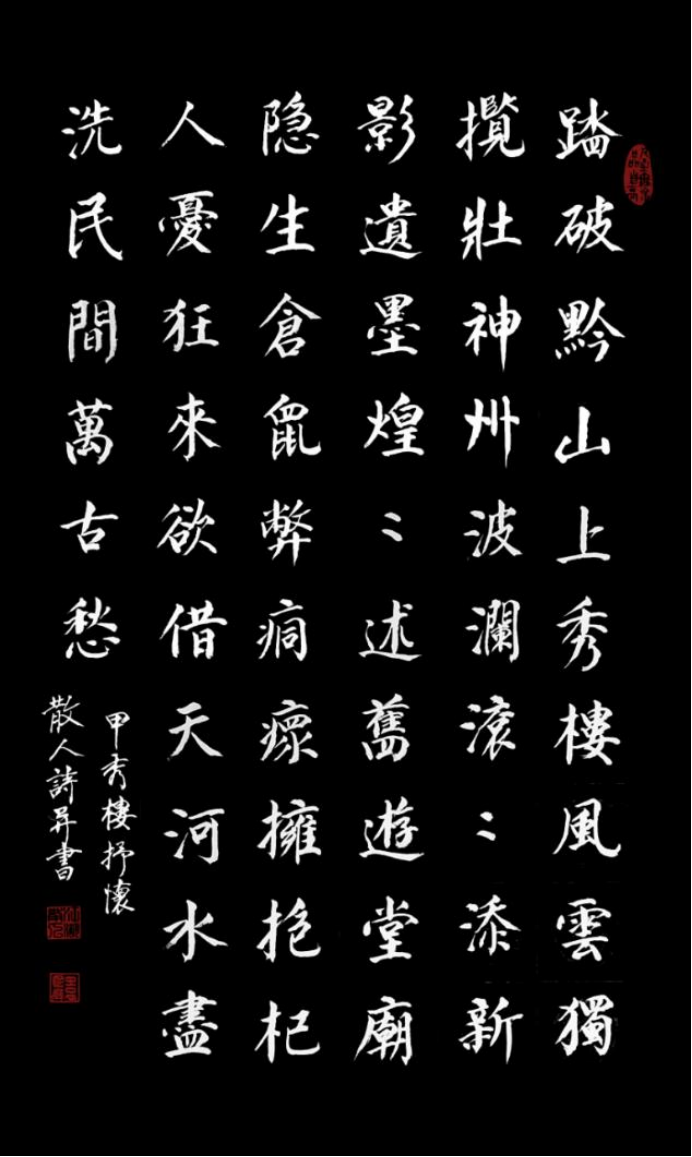 踏破黔山上秀樓風雲獨
攬壯神州波瀾滾〻添新
影遺墨煌〻述舊遊堂廟
隐生倉鼠弊痌瘝擁抱杞
人憂狂來欲借天河水盡
洗民間萬古愁
甲秀樓抒懷
散人詩昇書